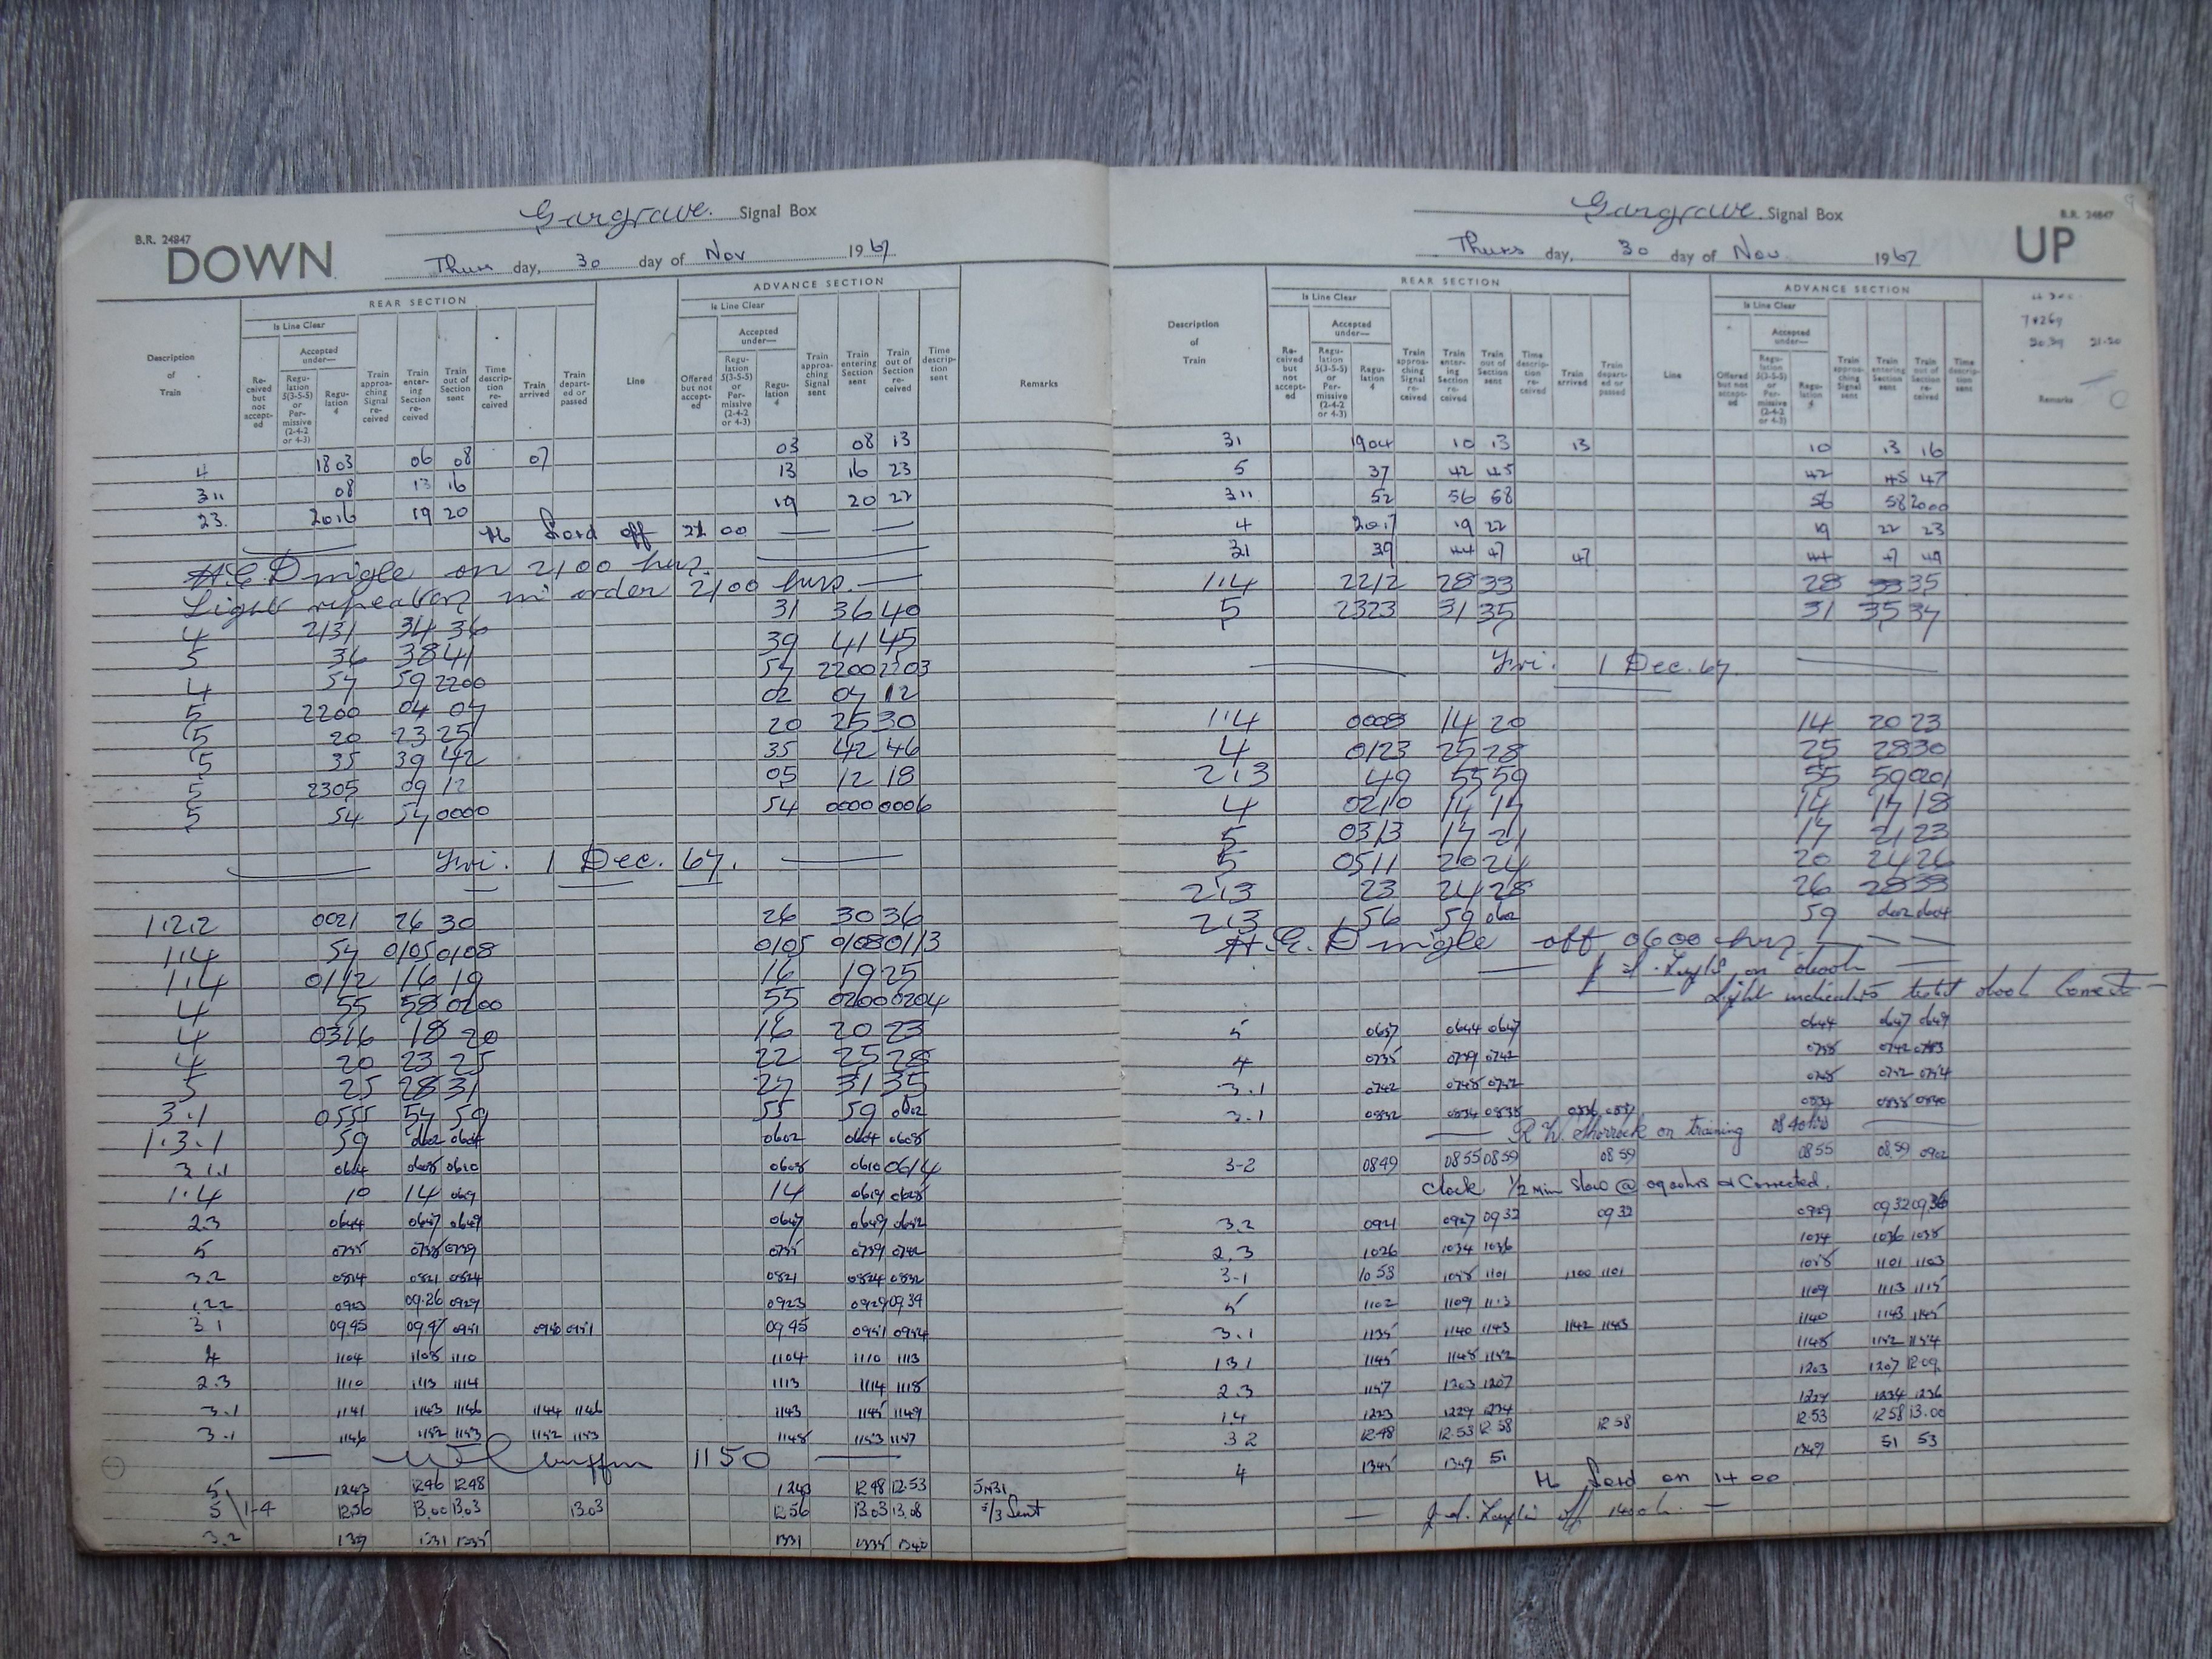 B.R. 24847
Gargrave Signal Box
DOWN
Thurs day, 30 day of Nov 1967
REAR SECTION
ADVANCE SECTION
Description of Train
Is Line Clear
Received but not accepted
Accepted under—
Regulation 5(3-5-5) or Permissive (2-4-2 or 4-3)
Regulation 4
Train approaching Signal received
Train entering Section received
Train out of Section sent
Time description received
Train arrived
Train departed or passed
Line
Is Line Clear
Offered but not accepted
Accepted under—
Regulation 5(3-5-5) or Permissive (2-4-2 or 4-3)
Regulation 4
Train approaching Signal sent
Train entering Section sent
Train out of Section received
Time description sent
Remarks
4 1803 06 08 07 03 08 13
311 08 13 16 13 16 23
23. 2016 19 20 19 20 22
H Lord off 21 00
H.E. Dingle on 2100 hrs.
Light repeaters in order 2100 hrs.
4 2131 34 36 31 36 40
5 36 38 41 39 41 45
4 57 59 2200 57 2200 2203
5 2200 04 07 02 07 12
5 20 23 25 20 25 30
5 35 39 42 35 42 46
5 2305 09 12 05 12 18
5 54 57 0000 54 0000 0006
Fri. 1 Dec. 67.
1.2.2 0021 26 30 26 30 36
1.4 57 0105 0108 0105 0108 0113
1.4 0112 16 19 16 19 25
4 55 58 0200 55 0200 0204
4 0316 18 20 16 20 23
4 20 23 25 22 25 28
5 25 28 31 27 31 35
3.1 0555 57 59 55 59 0602
1.3.1 59 0602 0604 0602 0604 0608
3.1.1 0604 0608 0610 0608 0610 0614
1.4 10 14 0619 14 0619 0625
2.3 0644 0647 0649 0647 0649 0652
5 0735 0738 0739 0735 0739 0742
3.2 0814 0821 0824 0821 0824 0832
1.2.2 0923 09.26 0929 0923 0929 0934
3.1 0945 0947 0951 0950 0951 0945 0951 0954
4 1104 1108 1110 1104 1110 1113
2.3 1110 1113 1114 1113 1114 1118
3.1 1141 1143 1146 1144 1146 1143 1145 1149
3.1 1146 1152 1153 1152 1153 1148 1153 1157
1150
5 1243 1246 1248 1243 1248 12.53 5N31
5 1-4 1256 13.00 13.03 13.03 1256 13.03 13.08 5/3 Sent
3.2 1331 1335 1331 1335 1340
Gargrave Signal Box
B.R. 24847
UP
Thurs day, 30 day of Nov 1967
REAR SECTION
ADVANCE SECTION
Description of Train
Is Line Clear
Received but not accepted
Accepted under—
Regulation 5(3-5-5) or Permissive (2-4-2 or 4-3)
Regulation 4
Train approaching Signal received
Train entering Section received
Train out of Section sent
Time description received
Train arrived
Train departed or passed
Line
Is Line Clear
Offered but not accepted
Accepted under—
Regulation 5(3-5-5) or Permissive (2-4-2 or 4-3)
Regulation 4
Train approaching Signal sent
Train entering Section sent
Train out of Section received
Time description sent
Remarks
20.39 21-20
31 1904 10 13 13 10 13 16
5 37 42 45 42 45 47
311 52 56 58 56 58 2000
4 2017 19 22 19 22 23
31 39 44 47 47 44 47 49
1.4 2212 28 33 28 35
5 2323 31 35 31 35 37
Fri. 1 Dec. 67.
1.4 0008 14 20 14 20 23
4 0123 25 28 25 28 30
2.1.3 49 55 59 55 59 0201
4 0210 14 17 14 17 18
5 0313 17 21 17 21 23
5 0511 20 24 20 24 26
2.1.3 23 24 28 26 28 33
2.1.3 56 59 0602 59 0602 0604
H.E. Dingle off 0600 hrs
on 0600h
Light indicators tested 0600h Correct
5 0637 0644 0647 0644 0647 0649
4 0735 0739 0742 0738 0742 0743
3.1 0742 0748 0752 0748 0752 0754
3.1 0832 0834 0838 0836 0837 0834 0838 0840
R W. Morrock on training 0840hrs
3-2 0849 0855 0859 0859 0855 0859 0902
Clock 1/2 Min Slow @ 0900hrs & Corrected.
3.2 0921 0927 0932 0932 0929 0932 0936
2.3 1026 1034 1036 1034 1036 1038
3-1 1053 1058 1101 1100 1101 1058 1101 1103
5 1102 1109 1113 1109 1113 1115
3.1 1135 1140 1143 1142 1143 1140 1143 1145
131 1145 1148 1152 1148 1152 1154
2.3 1157 1203 1207 1203 1207 1209
1.4 1223 1229 1234 1229 1234 1236
3 2 12.48 12.53 12.58 12 58 12.53 1258 13.00
4 1345 1349 51 1349 51 53
H Lord on 14 00
off 1400h.